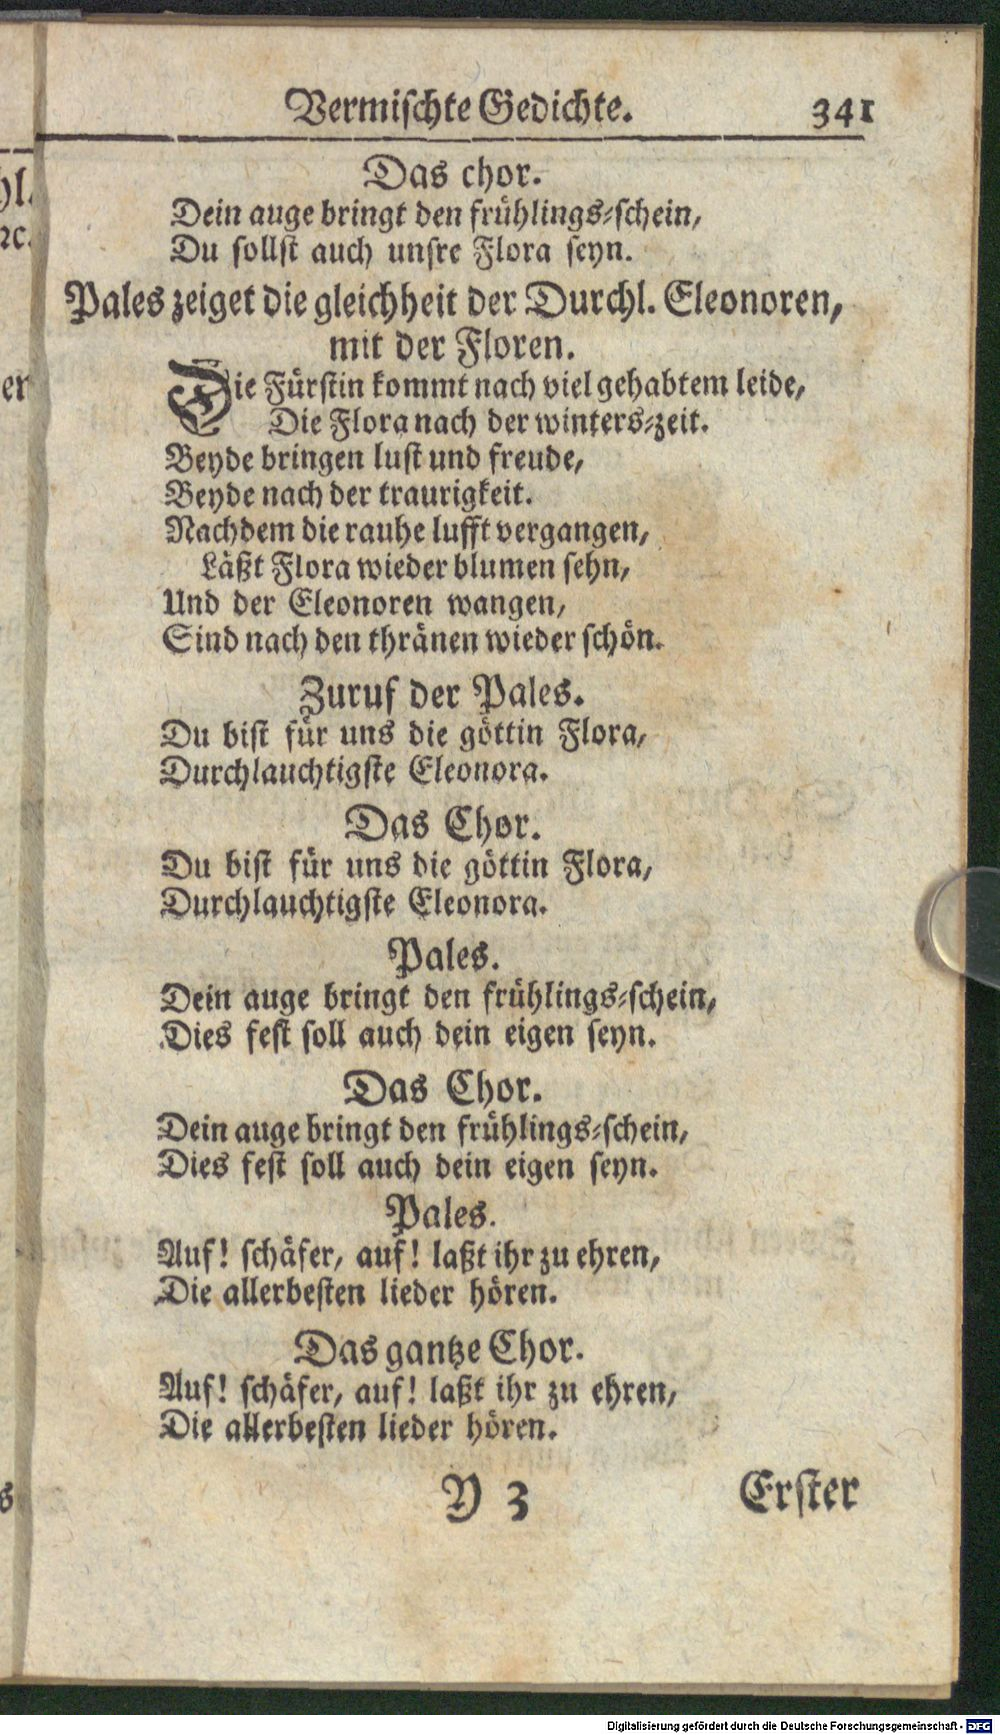 Vermischte Gedichte. 341
Das chor.
Dein auge bringt den frühlings-schein,
Du sollst auch unsre Flora seyn.
Pales zeiget die gleichheit der Durchl. Eleonoren,
mit der Floren.
Die Fürstin kommt nach viel gehabtem leide,
Die Flora nach der winters-zeit.
Beyde bringen lust und freude,
Beyde nach der traurigkeit.
Nachdem die rauhe lufft vergangen,
Läßt Flora wieder blumen sehn,
Und der Eleonoren wangen,
Sind nach den thränen wieder schön.
Zuruf der Pales.
Du bist für uns die göttin Flora,
Durchlauchtigste Eleonora.
Das Chor.
Du bist für uns die göttin Flora,
Durchlauchtigste Eleonora.
Pales.
Dein auge bringt den frühlings-schein,
Dies fest soll auch dein eigen seyn.
Das Chor.
Dein auge bringt den frühlings-schein,
Dies fest soll auch dein eigen seyn.
Pales.
Auf! schäfer, auf! laßt ihr zu ehren,
Die allerbesten lieder hören.
Das gantze Chor.
Auf! schäfer, auf! laßt ihr zu ehren,
Die allerbesten lieder hören.
Y 3 Erster
Digitalisierung gefördert durch die Deutsche Forschungsgemeinschaft - DFG